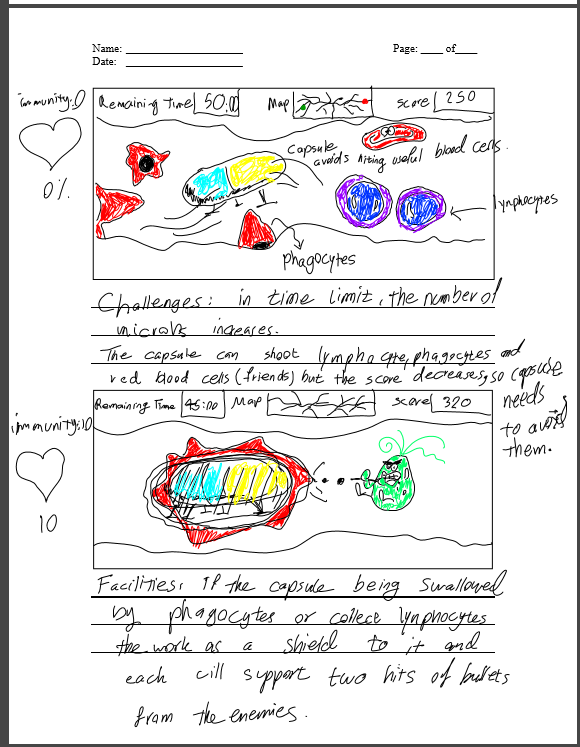 Name:
Page: of
Date:
immunity:0
Remaining Time 50:00 Map score 250
0%
capsule
avoids hiting useful blood cells.
lymphocytes
phagocytes
Challenges: in time limit, the number of
microbs increases.
The capsule can shoot lymphocyte, phagocytes and
red blood cells (friends) but the score decreases, so capsule
needs
to avoid
them.
immunity:10
Remaining Time 45:00 Map score 320
10
Facilities: If the capsule being swallowed
by phagocytes or collect lynphocytes
the work as a shield to it and
each will support two hits of bullets
from the enemies.